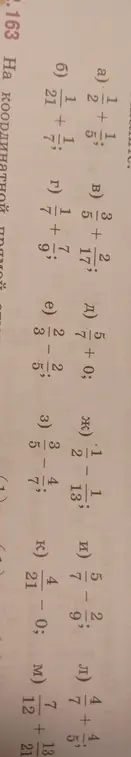 а) 1/2 + 1/5; в) 3/5 + 2/17; д) 5/7 + 0; ж) 1/2 − 1/13; и) 5/7 − 2/9; л) 4/7 + 4/5;
б) 1/21 + 1/7; г) 1/7 + 7/9; е) 2/3 − 2/5; з) 3/5 − 4/7; к) 4/21 − 0; м) 7/12 + 13/21
.163 На координатной прямой